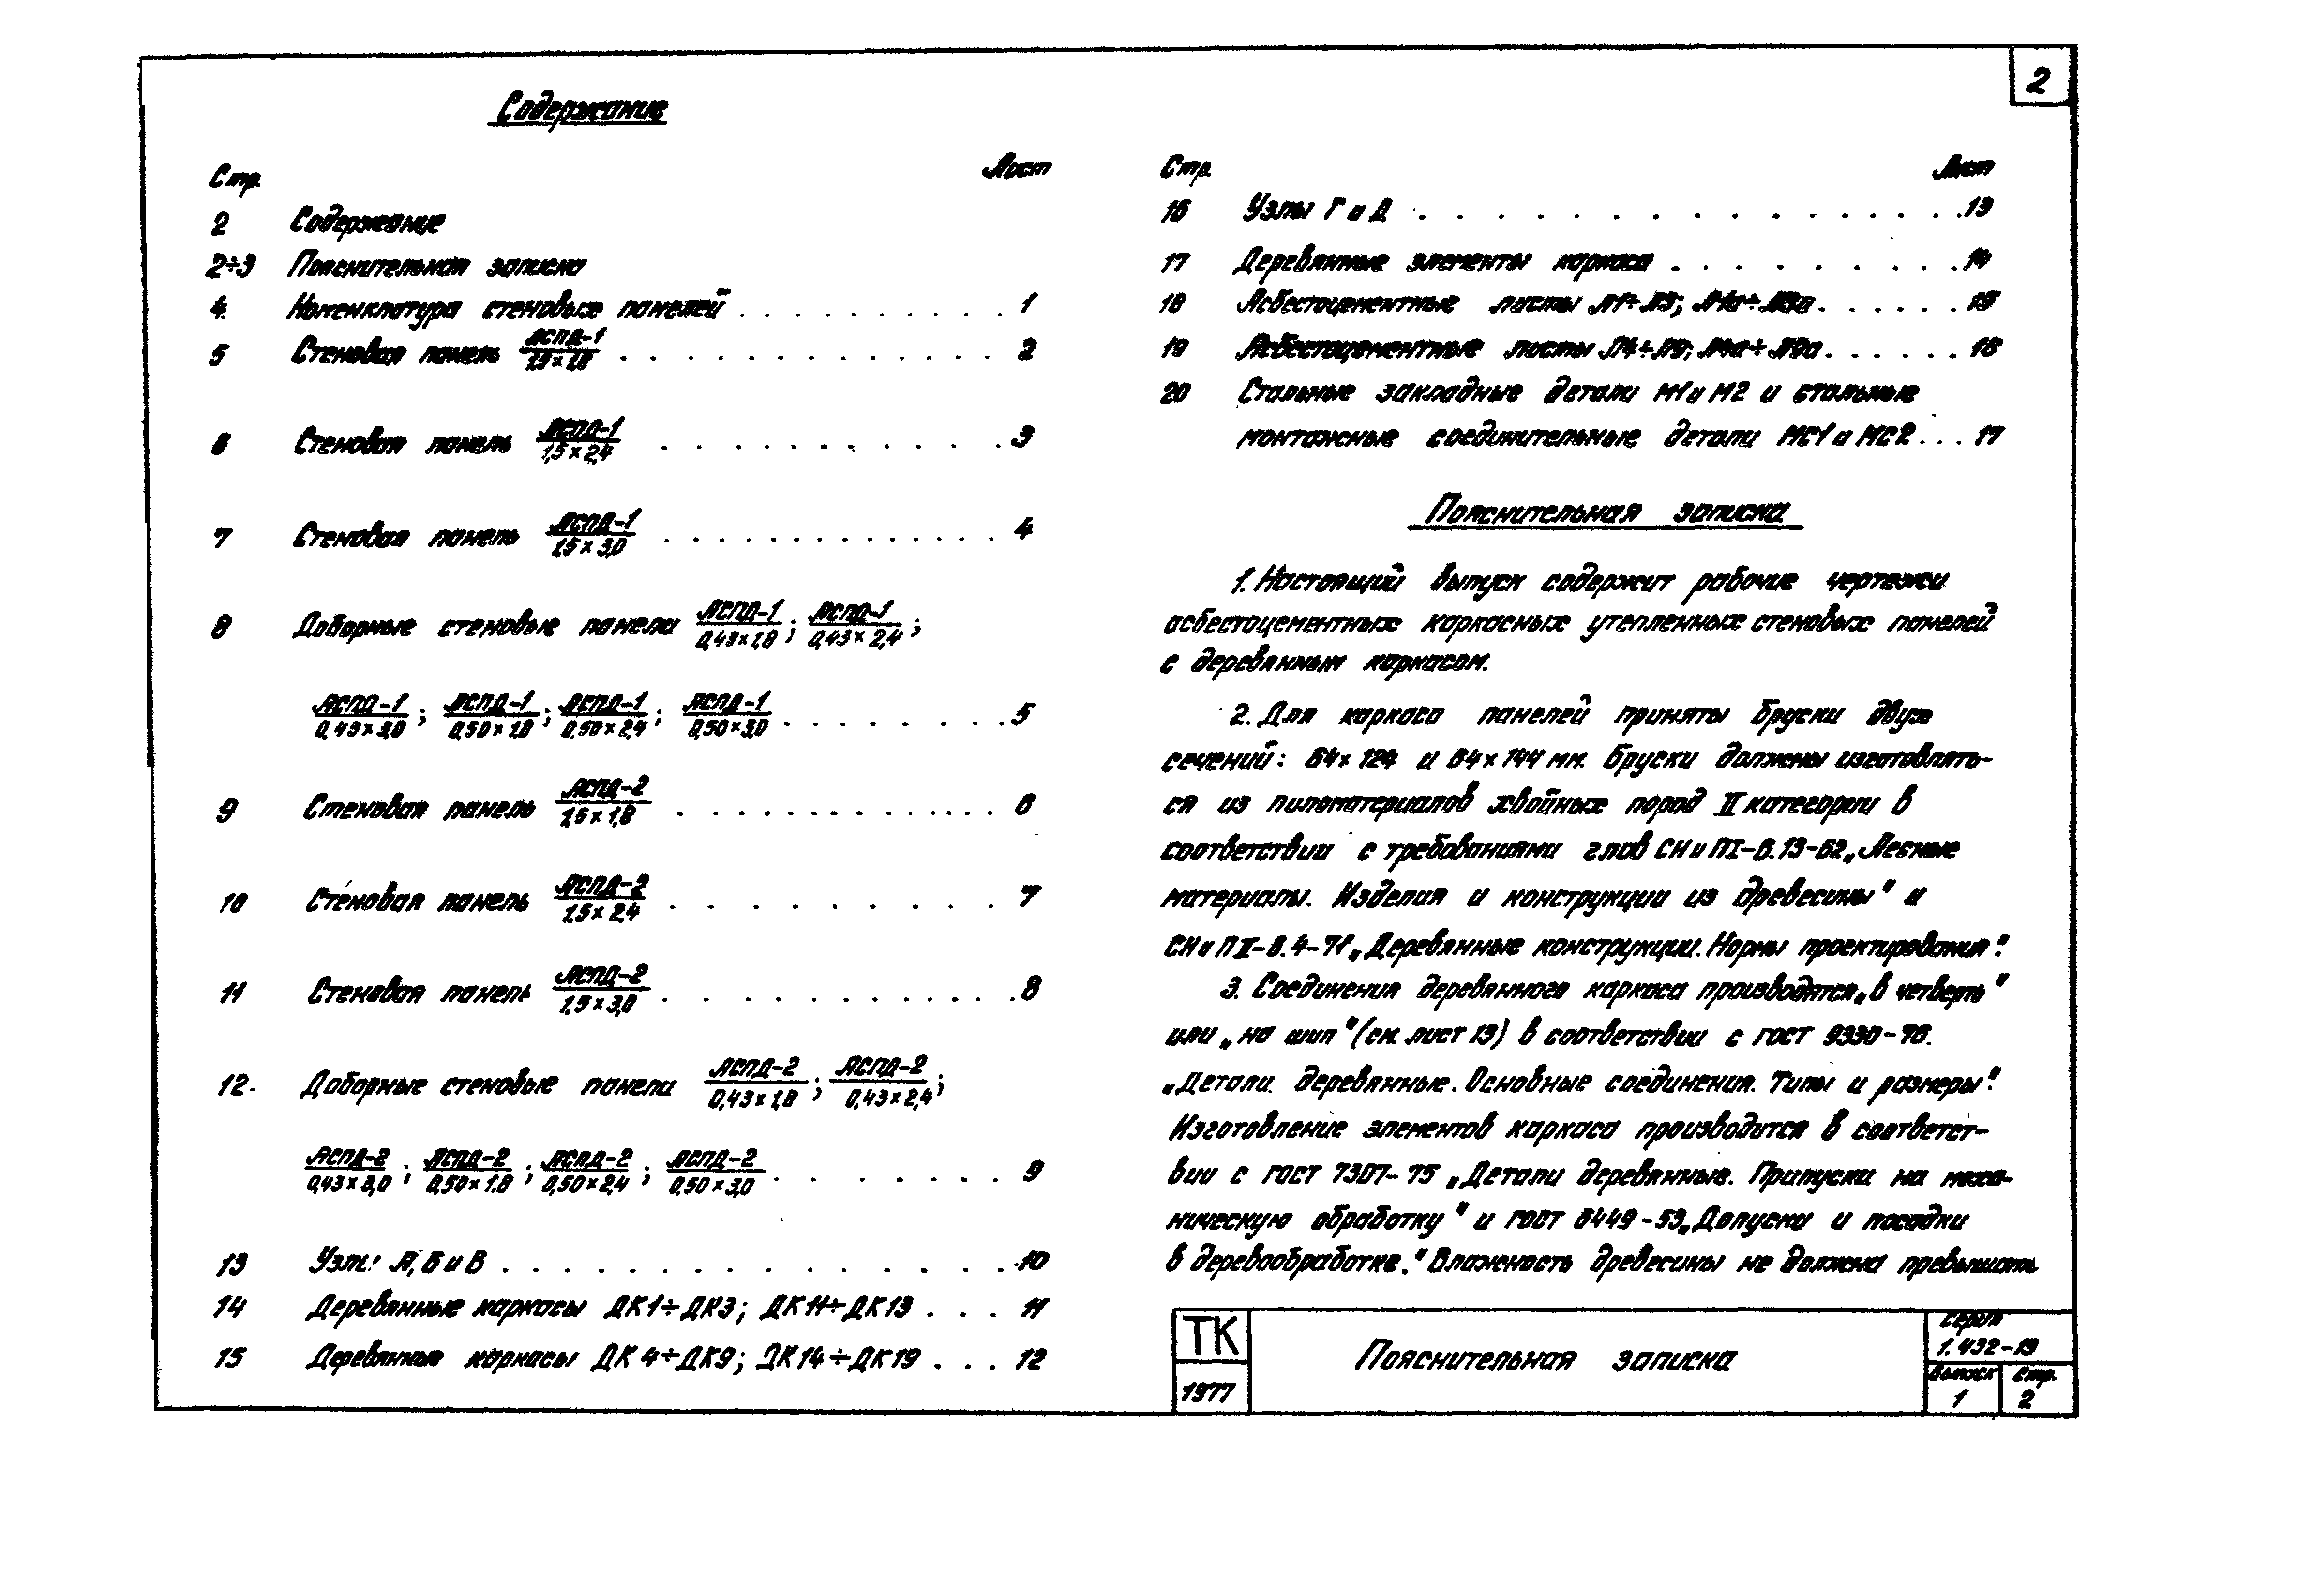 2
Содержание
Стр. Лист
2 Содержание
2÷3 Пояснительная записка
4. Номенклатура стеновых панелей . . . . . . . . . . . 1
5 Стеновая панель АСПД-1 / 1,5×1,8 . . . . . . . . . . . . . . 2
6 Стеновая панель АСПД-1 / 1,5×2,4 . . . . . . . . . . . 3
7 Стеновая панель АСПД-1 / 1,5×3,0 . . . . . . . . . . . . . . 4
8 Доборные стеновые панели АСПД-1 / 0,43×1,8 ; АСПД-1 / 0,43×2,4 ;
АСПД-1 / 0,43×3,0 ; АСПД-1 / 0,50×1,8 ; АСПД-1 / 0,50×2,4 ; АСПД-1 / 0,50×3,0 . . . . . . . . 5
9 Стеновая панель АСПД-2 / 1,5×1,8 . . . . . . . . . . . . . . 6
10 Стеновая панель АСПД-2 / 1,5×2,4 . . . . . . . . . . . 7
11 Стеновая панель АСПД-2 / 1,5×3,0 . . . . . . . . . . . . . 8
12. Доборные стеновые панели АСПД-2 / 0,43×1,8 ; АСПД-2 / 0,43×2,4 ;
АСПД-2 / 0,43×3,0 ; АСПД-2 / 0,50×1,8 ; АСПД-2 / 0,50×2,4 ; АСПД-2 / 0,50×3,0 . . . . . . . 9
13 Узлы А, Б и В . . . . . . . . . . . . . . . . 10
14 Деревянные каркасы ДК1÷ДК3; ДК11÷ДК13 . . . 11
15 Деревянные каркасы ДК4÷ДК9; ДК14÷ДК19 . . . 12
Стр. Лист
16 Узлы Г и Д . . . . . . . . . . . . . . . . 13
17 Деревянные элементы каркаса . . . . . . . . . . 14
18 Асбестоцементные листы Л1÷Л3; Л1а÷Л3а . . . . . . 15
19 Асбестоцементные листы Л4÷Л9; Л4а÷Л9а . . . . . . 16
20 Стальные закладные детали М1 и М2 и стальные
монтажные соединительные детали МС1 и МС2 . . . 17
Пояснительная записка
1. Настоящий выпуск содержит рабочие чертежи
асбестоцементных каркасных утепленных стеновых панелей
с деревянным каркасом.
2. Для каркаса панелей приняты бруски двух
сечений: 64×124 и 64×144 мм. Бруски должны изготовлять-
ся из пиломатериалов хвойных пород II категории в
соответствии с требованиями глав СНиП I-В.13-62 „Лесные
материалы. Изделия и конструкции из древесины" и
СНиП II-В.4-71 „Деревянные конструкции. Нормы проектирования".
3. Соединения деревянного каркаса производятся „в четверть"
или „на шип" (см. лист 13) в соответствии с ГОСТ 9330-76.
„Детали деревянные. Основные соединения. Типы и размеры".
Изготовление элементов каркаса производится в соответст-
вии с ГОСТ 7307-75 „Детали деревянные. Припуски на меха-
ническую обработку" и ГОСТ 6449-53 „Допуски и посадки
в деревообработке." Влажность древесины не должна превышать
ТК
1977
Пояснительная записка
Серия
1.432-19
Выпуск Стр.
1 2